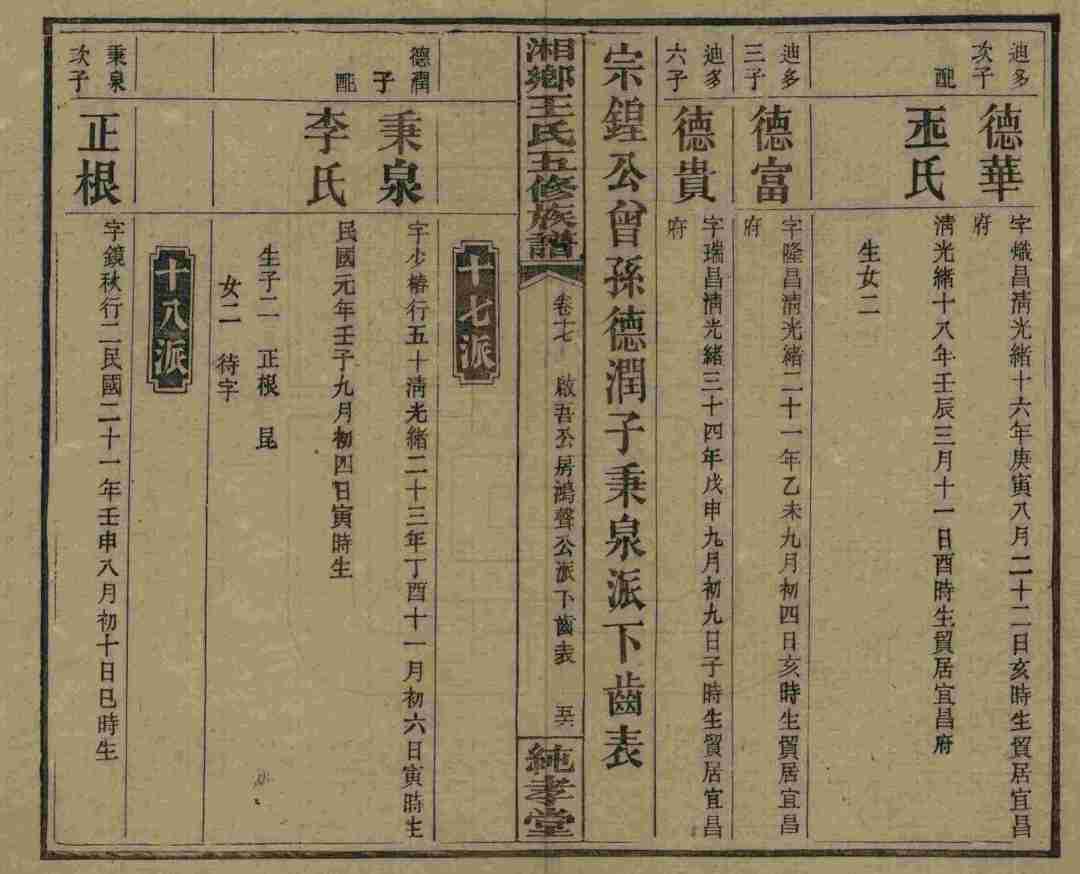 迪多
次子
德華
字熾昌清光緒十六年庚寅八月二十二日亥時生貿居宜昌
府
配
王氏
清光緒十八年壬辰三月十一日酉時生貿居宜昌府
生女二
迪多
三子
德富
字隆昌清光緒二十一年乙未九月初四日亥時生貿居宜昌
府
迪多
六子
德貴
字瑞昌清光緒三十四年戊申九月初九日子時生貿居宜昌
府
宗鍠公曾孫德潤子秉泉派下齒表
湘鄉王氏五修族譜
卷十七
啟吾公房鴻聲公派下齒表
純孝堂
十七派
德潤
子
秉泉
字少椿行五十清光緒二十三年丁酉十一月初六日寅時生
配
李氏
民國元年壬子九月初四日寅時生
生子二 正根 昆
女二 待字
十八派
秉泉
次子
正根
字鏡秋行二民國二十一年壬申八月初十日巳時生